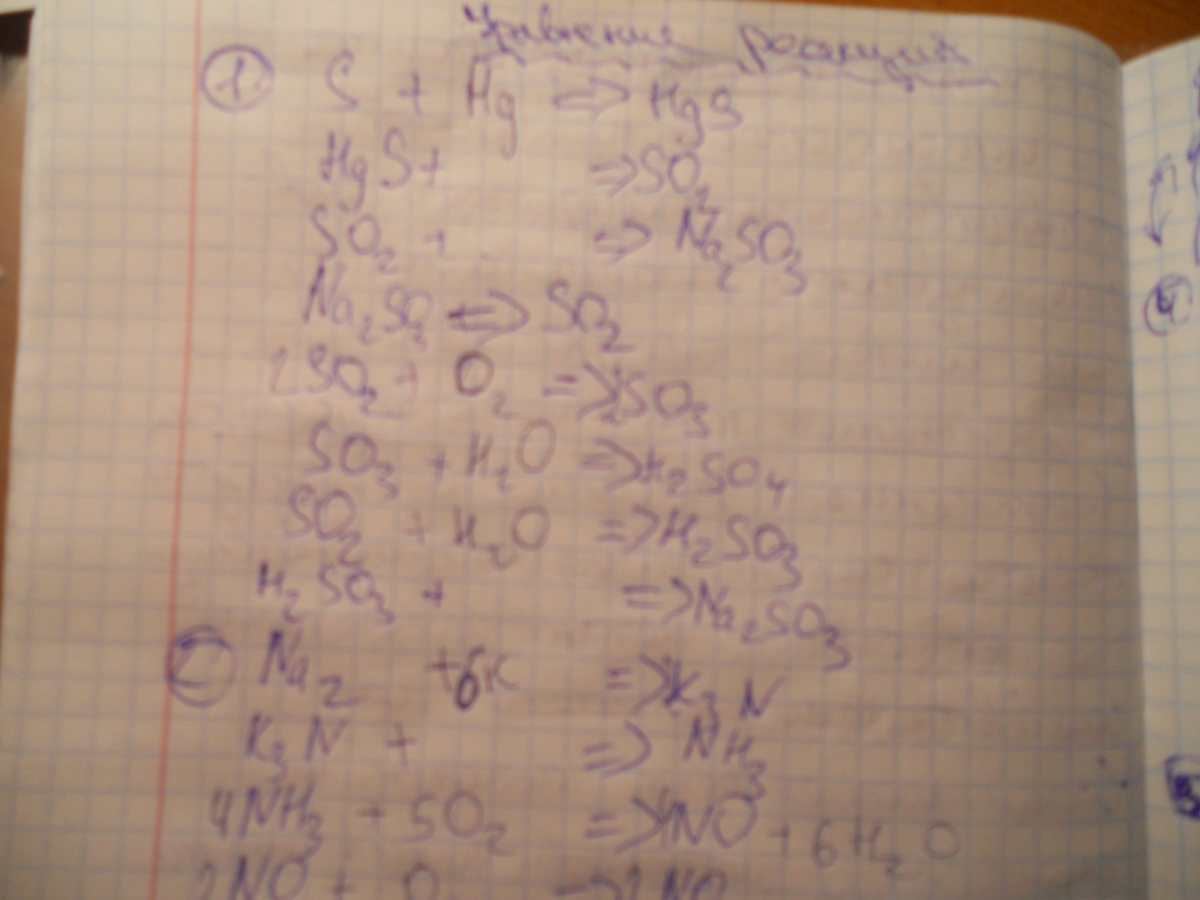 Уравнение реакций
① S + Hg => HgS
HgS + => SO₂
SO₂ + => Na₂SO₃
Na₂SO₃ => SO₂
2SO₂ + O₂ => 2SO₃
SO₃ + H₂O => H₂SO₄
SO₂ + H₂O => H₂SO₃
H₂SO₃ + => Na₂SO₃
② Na₂ + 6K => K₃N
K₃N + => NH₃
4NH₃ + 5O₂ => 4NO + 6H₂O
2NO + O => 2NO
④